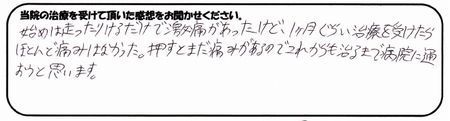 当院の治療を受けて頂いた感想をお聞かせください。
始めは走ったりけるだけで激痛があったけど、1ヶ月ぐらい治療を受けたら
ほとんど痛みはなかった。押すとまだ痛みがあるのでこれからも治るまで病院に通
おうと思います。